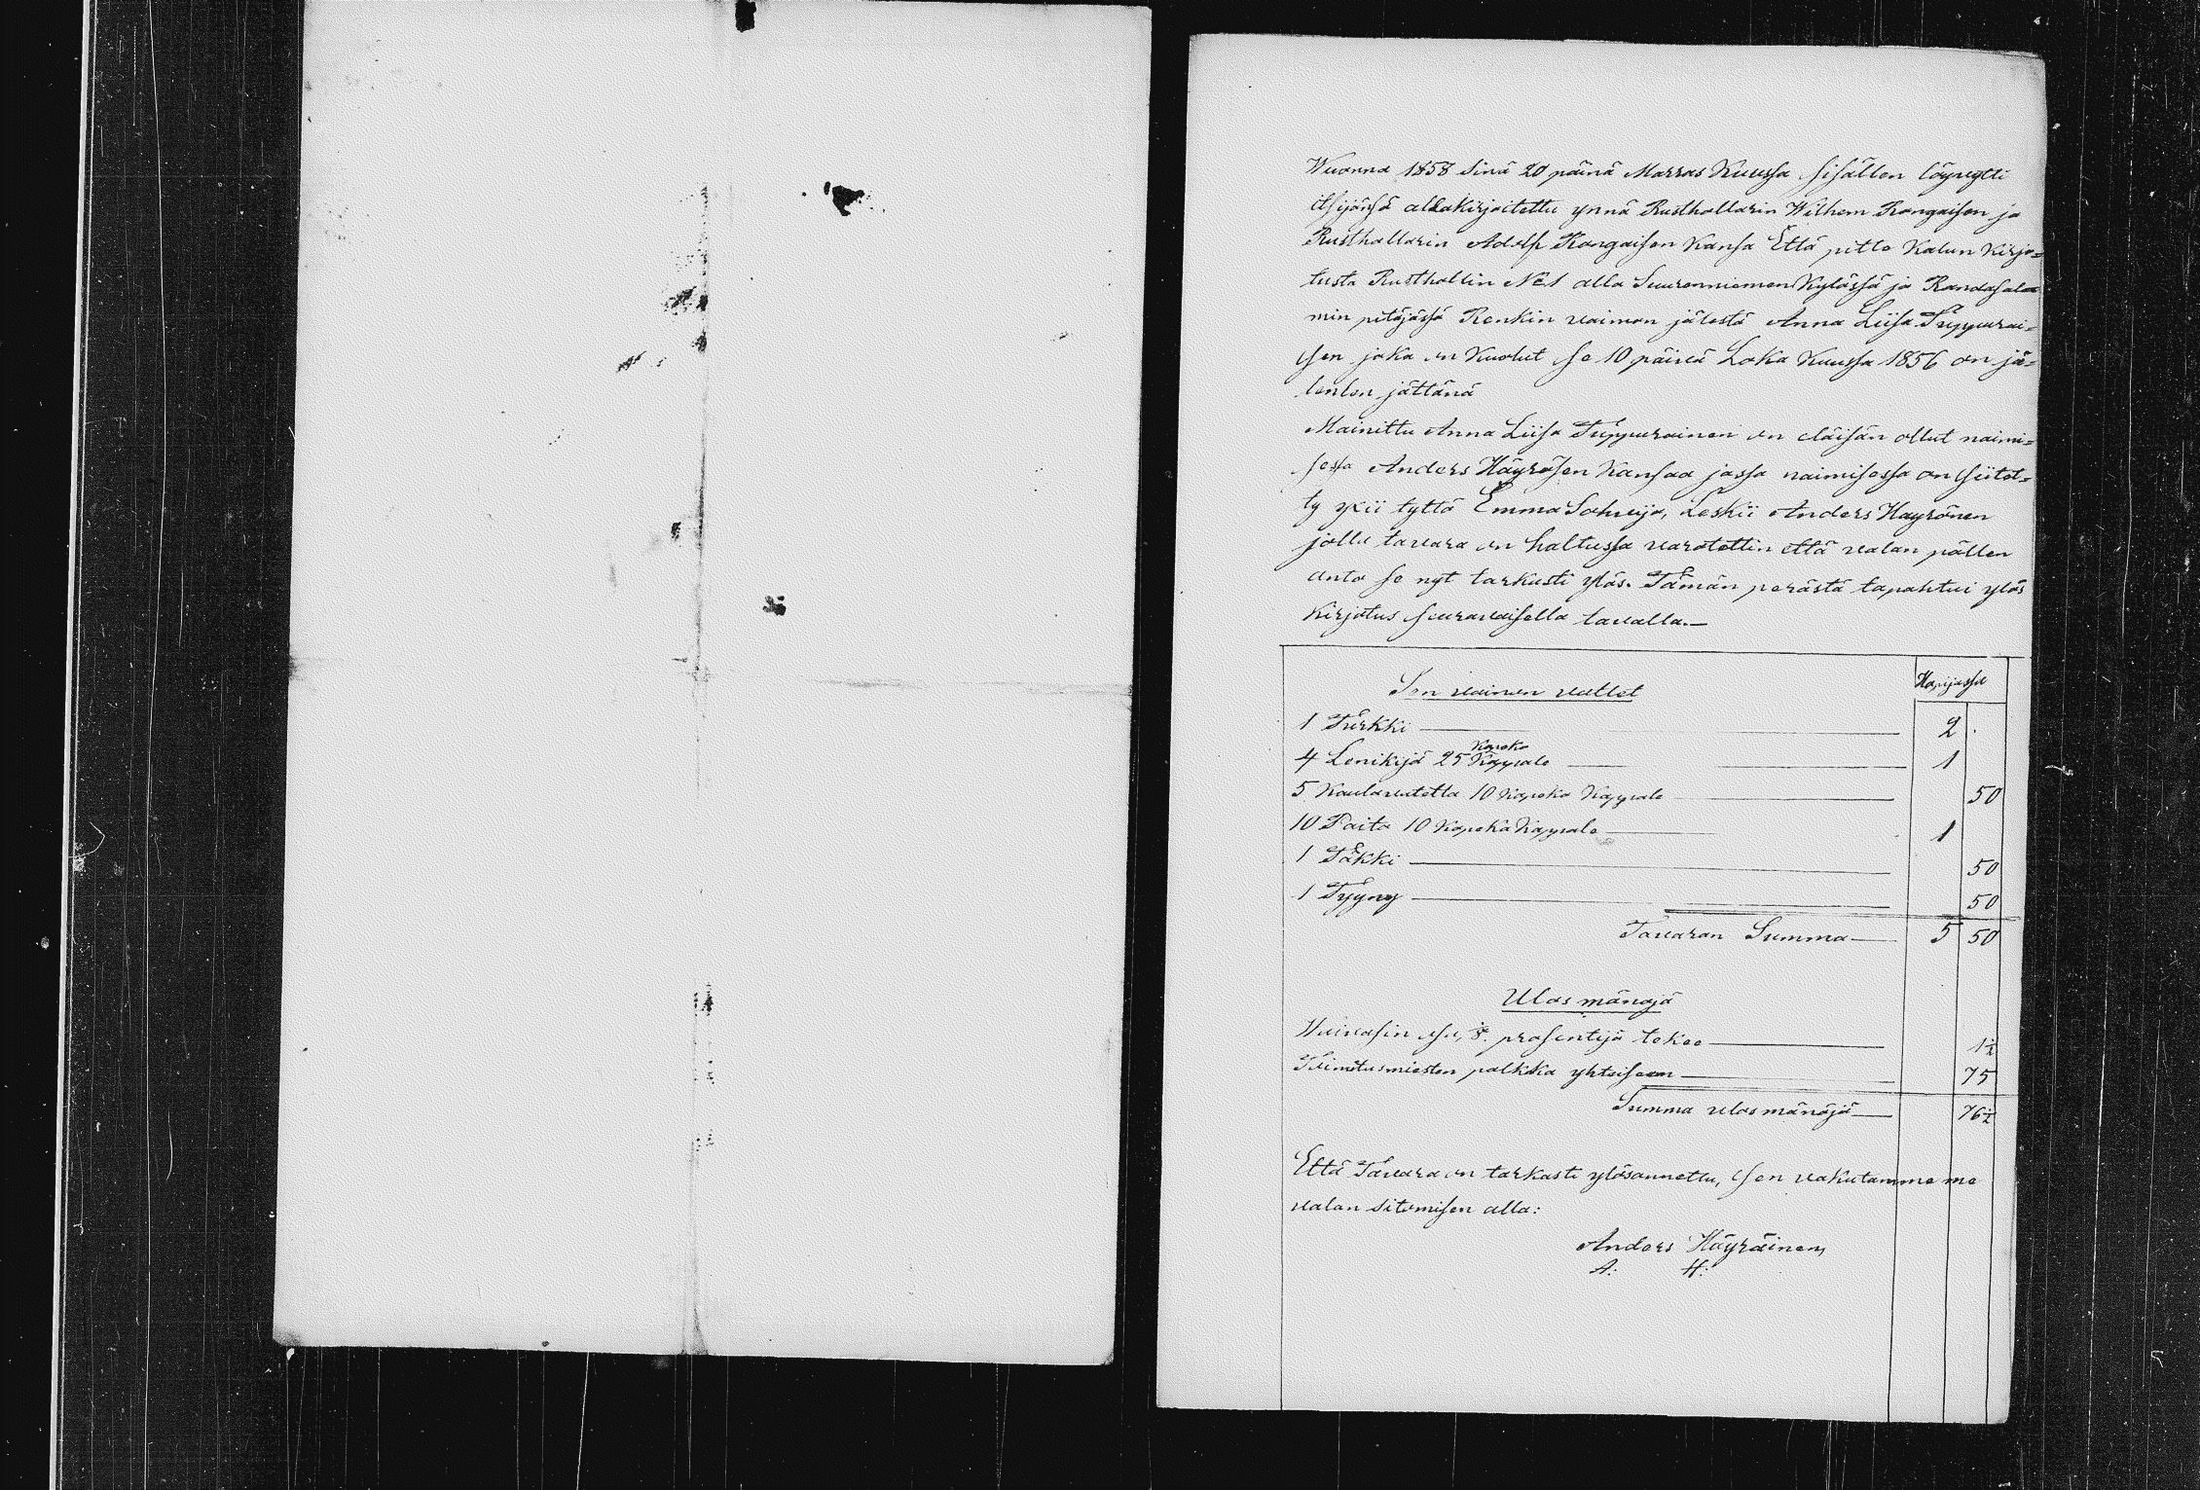 Wuonna 1858 Sinä 20 päinä Marras Kuussa sisällen löyngtti
itsijänsä allakirjoitettu ynnä Rusthollarin Wilhem Kongaisen ja
Rusthollarin Adolf Kongaisen Kansa Että pittä Kalun Kirjo=
tusta Rusthollin No 1 alla Suurenniemen Kylässä ja Randasala
min pitäjässä Renkin vaimon jälestä Anna Liisa Tuppurai=
sen joka on Kuolut se 10 päivä Loka Kuussa 1856 on jä=
lenlen jättänä
Mainittu Anna Liisa Tuppurainen on eläisän ollut naimi=
sessa Anders Häyräsen Kansaa jossa naimisessa on siitet=
ty yxii tyttö Emma Sohvija, Leskii Anders Hayrönen
jolla tavara on haltussa varotettin että valan pällen
anto se nyt tarkusti ylös. Tämän perästä tapahtui ylös
Kirjotus seuravaisella tavalla.—
Sen vainen vattet
Hopijassa
1 Turkki — 2 .
4 Lenikijä 25 Kopeka Kappale — 1
5 Kaulavatetta 10 Kopeka Kappale — 50
10 Paita 10 Kopeka Kappale — 1
1 Täkki — 50
1 Tyyny — 50
Tavaran Summa — 5 50
Ulos mänojä
Waivasin osa, 1/8. prosentijä tekee — 1 1/2
Toimitusmiesten palkka yhteiseen — 75
Summa ulos mänöjä — 76 1/2
Että Tavara on tarkasti ylösannettu, sen vakutamme me
valan sitomisen alla:
Anders Häyräinen
A: H: